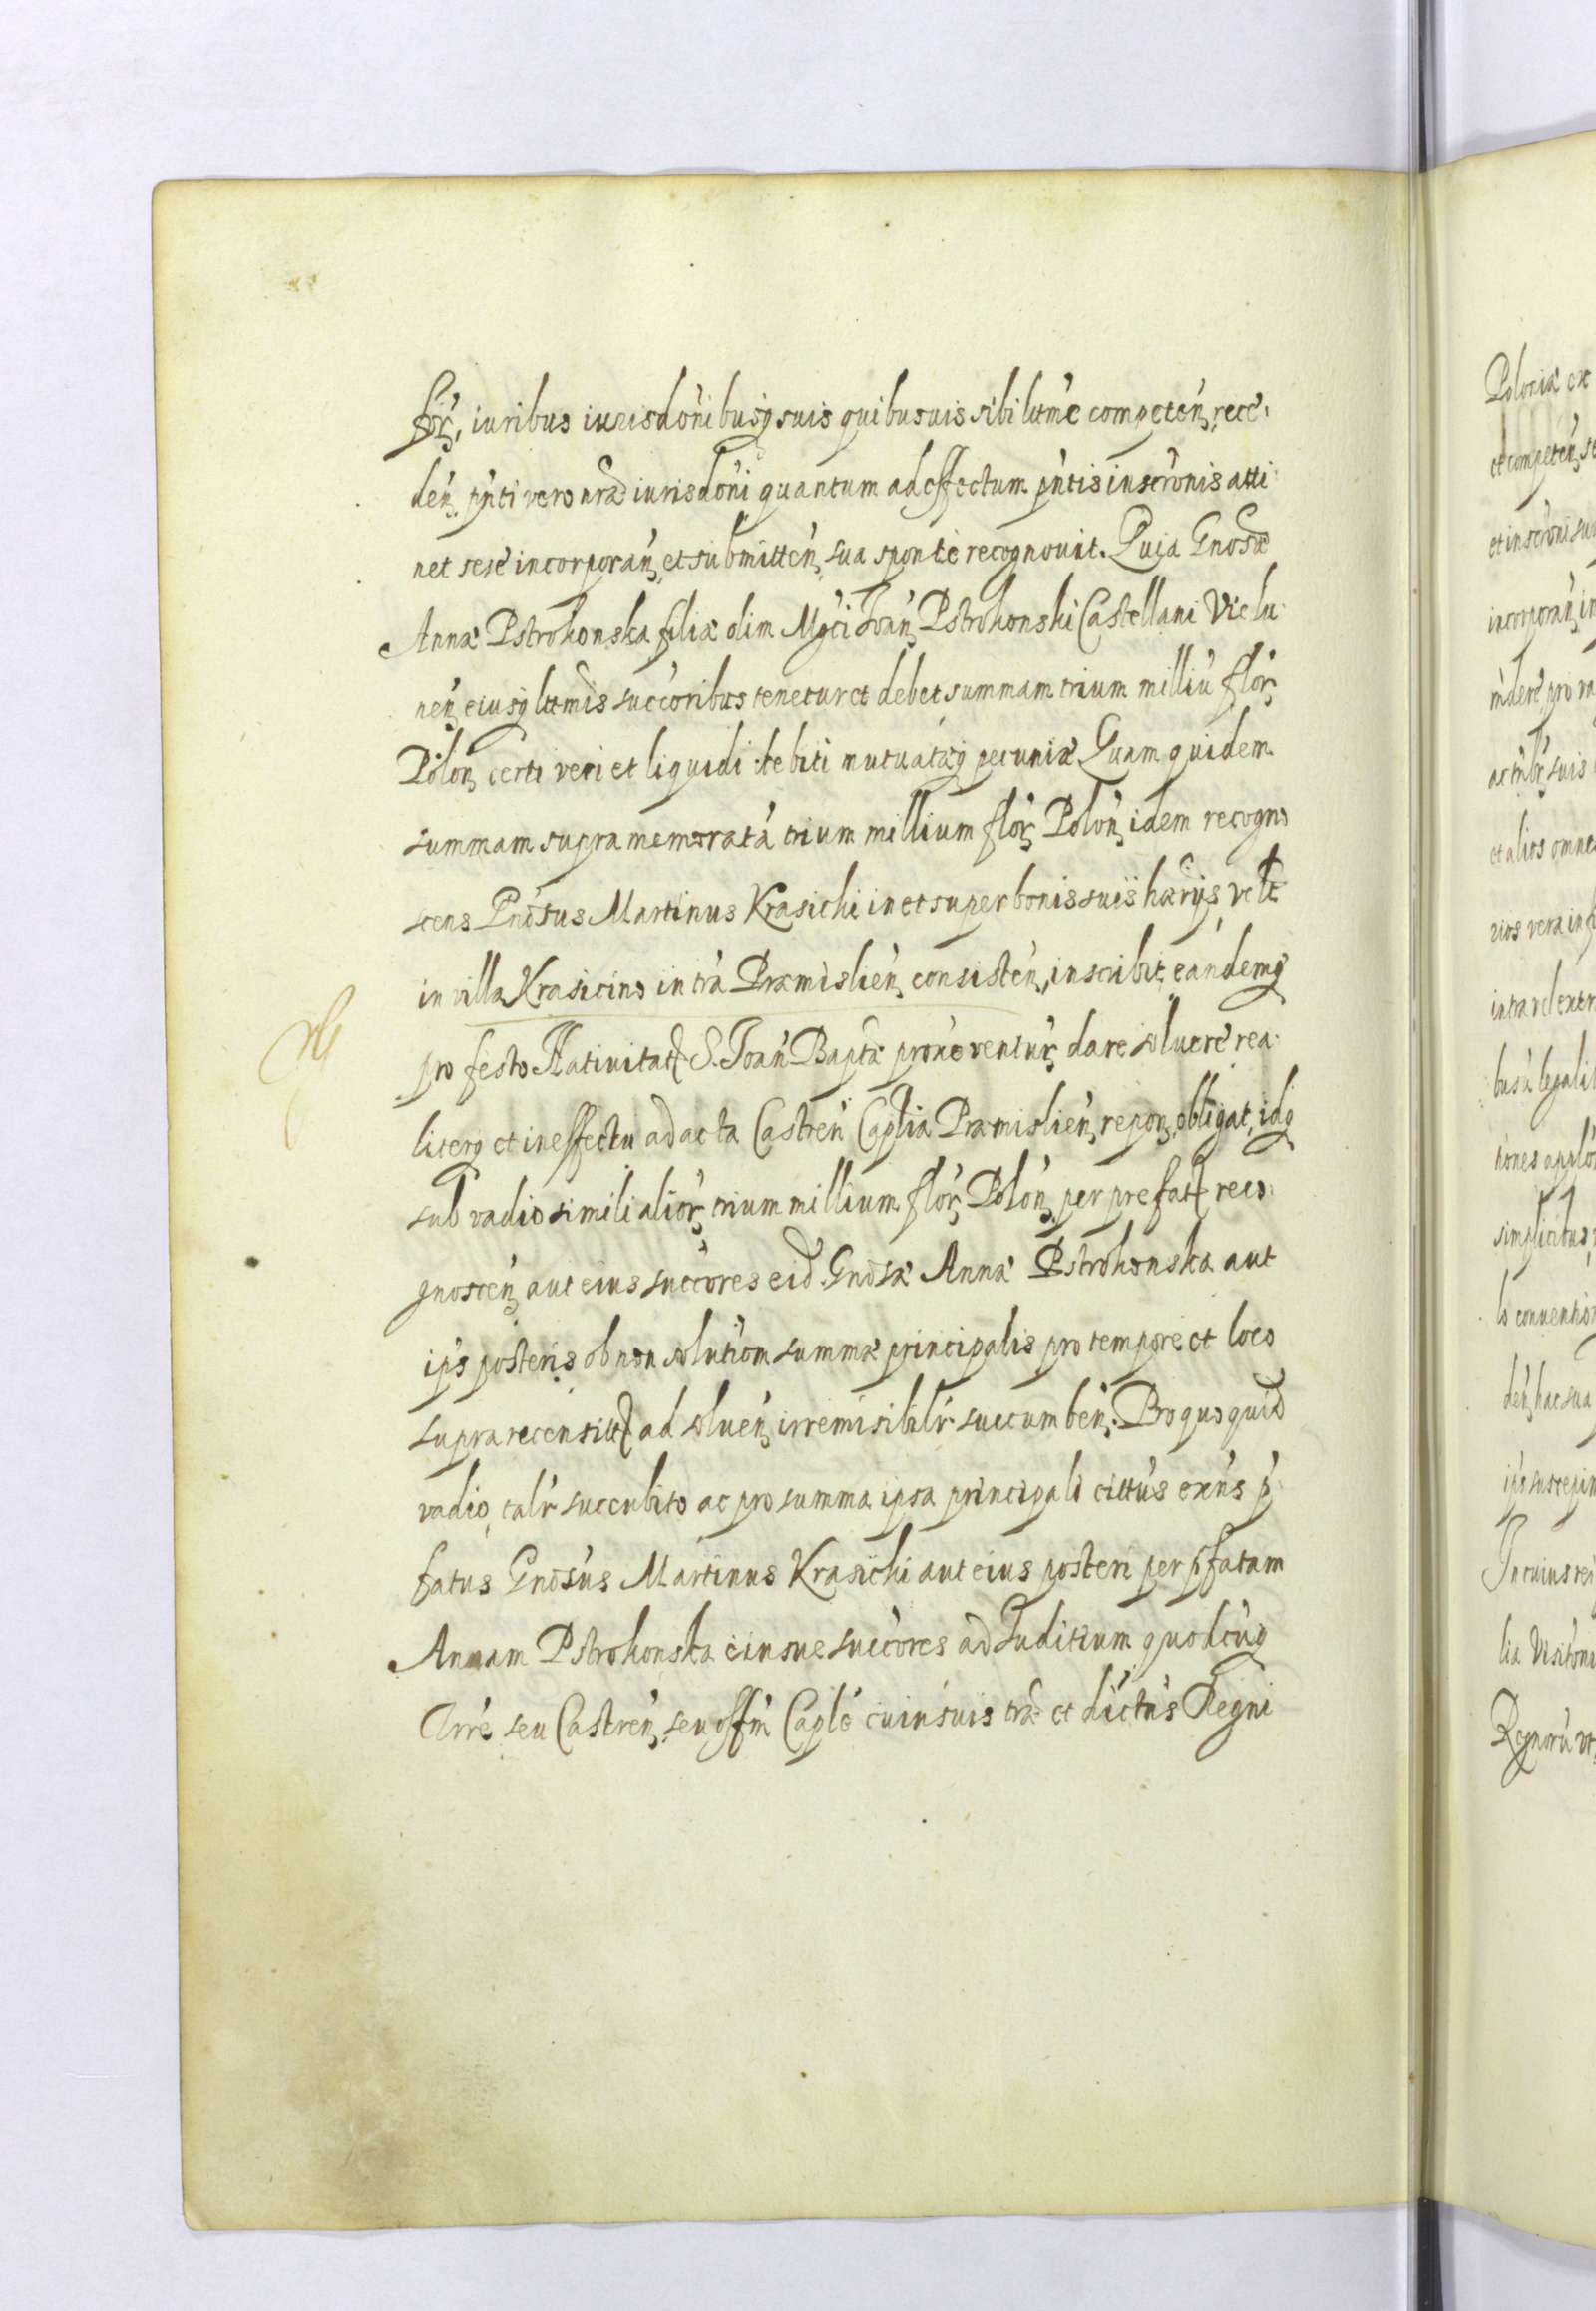 for, iuribus iurisdonibusq suis quibusuis sibi lttme competen, rece:
den, pnti vero nrae iurisdoni quantum ad effectum pntis inscronis atti:
net sese incorporan, et submitten, sua sponte recognouit. Quia Gnosae
Annae Pstrokonska filiae olim Mgci Joan, Pstrokonski Castellani Vielu:
nen, eiusq lttmis succoribus tenetur et debet summam trium milliu flor,
Polon, certi veri et liquidi debiti mutuataeq pecuniae Quam quidem
summam supra memorata trium millium flor, Polon, idem recogno
scens Gnosus Martinus Krasicki in et super bonis suis haerijs, vtlt
in villa Krasicino in tra Praemislien, consisten, inscribit, eandemq
pro festo Natiuitat S. Joan Baptae prone ventur, dare soluere rea:
literq et in effectu ad acta Castren Caplia Praemislien, repon, obligat, idq
sub vadio simili alior, trium millium flor, Polon, per prefat reco:
gnoscen, aut eius succores eid Gnosae Annae Pstrokonska aut
ips posteris ob non solutiom summae principalis pro tempore et loco
supra recensitt ad soluen, irremisibilr succumben, Pro quo quid
vadio, talr succubito ac pro summa ipsa principali cittus exns p
fatus Gnosus Martinus Krasicki aut eius posteri per pfatam
Annam Pstrokonska eiusue succores ad Juditium quodcuq
Trre seu Castren, seu offm Caple cuiusuis trae et dictus Regni
Poloniae ex
et competen, se
et inscroni su
incorporan, in
et alios omnes
rios vera in f
intra vel extr
simplicibus,
lo conuentio
den, hac sua
In cuius rei
lia Visitoni
Regnoru vt